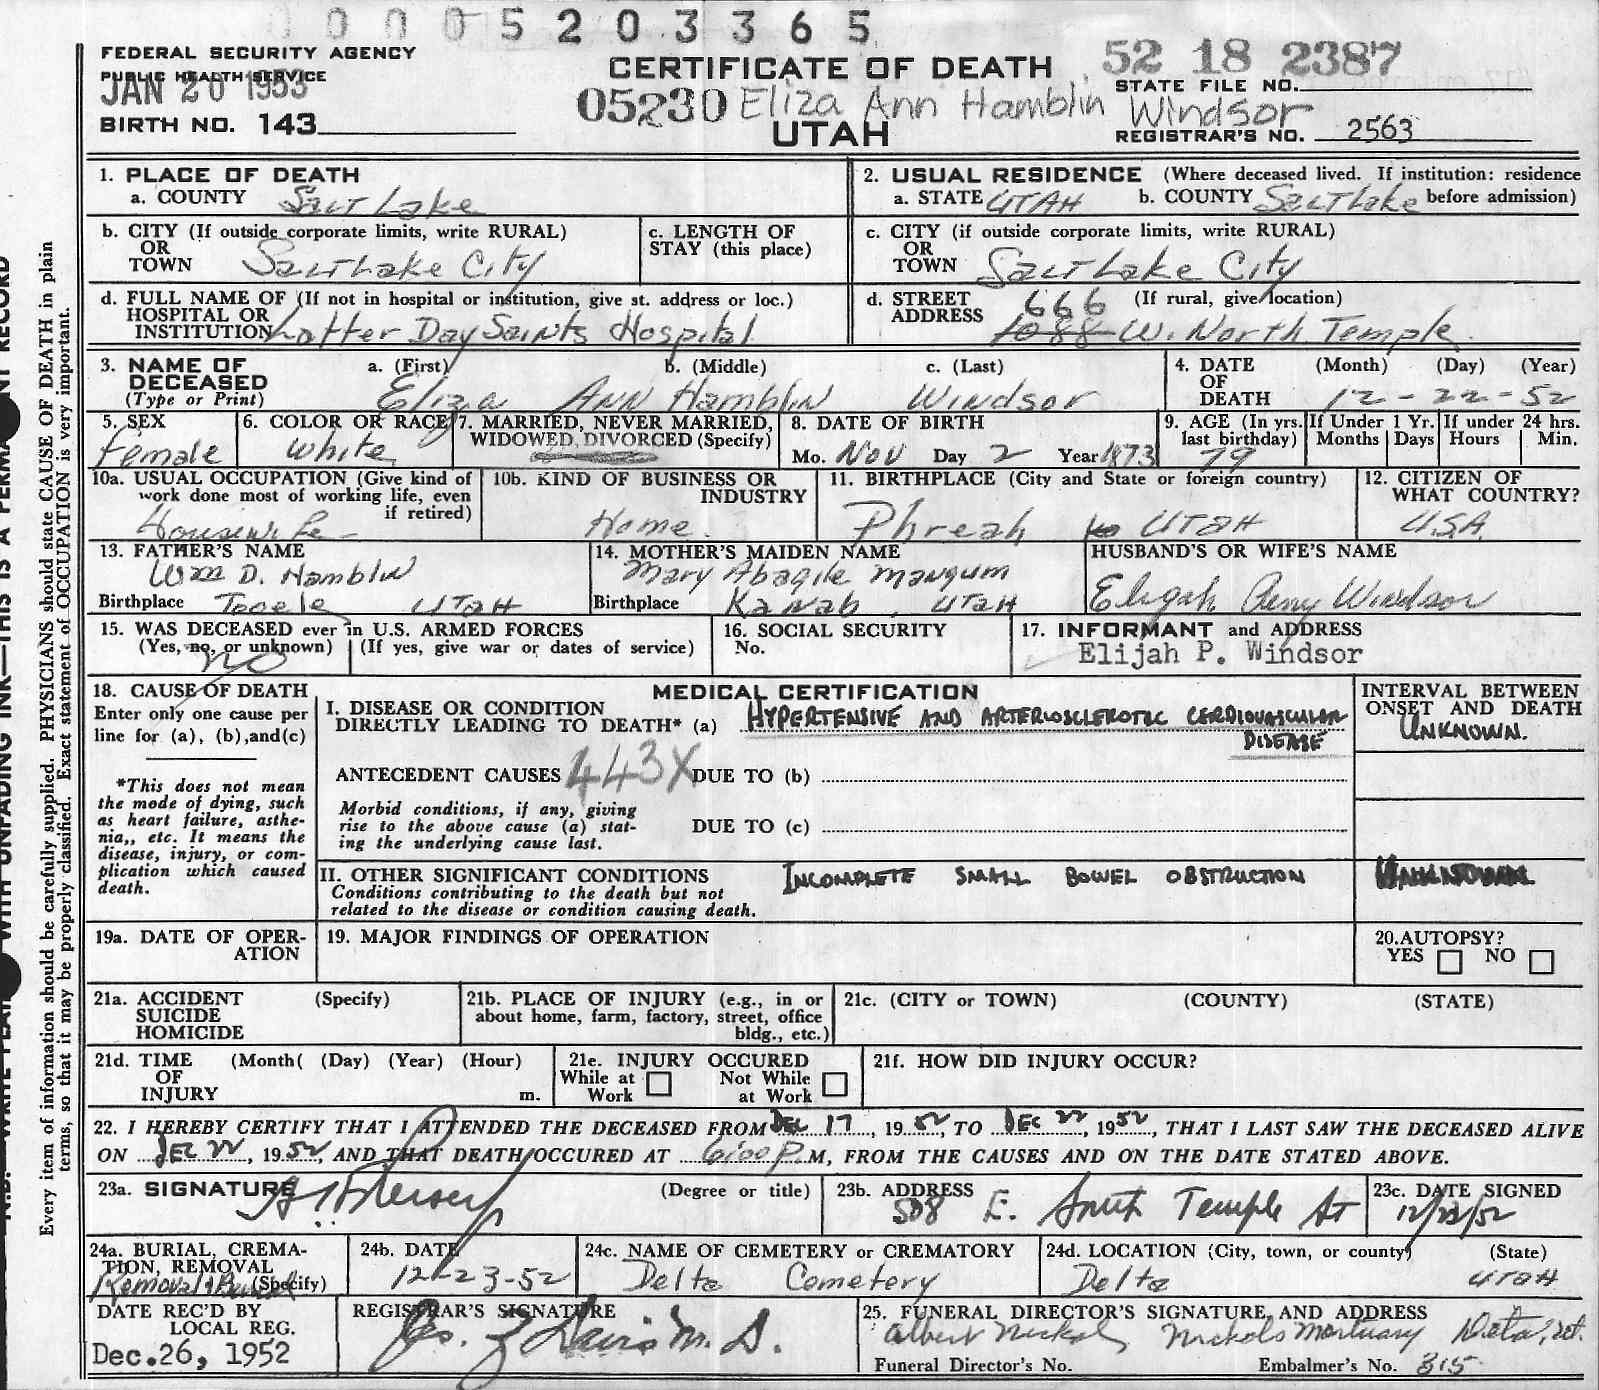 0 0 0 5 2 0 3 3 6 5
FEDERAL SECURITY AGENCY
PUBLIC HEALTH SERVICE
JAN 20 1953
BIRTH NO. 143
CERTIFICATE OF DEATH
05230 Eliza Ann Hamblin Windsor
UTAH
52 18 2387
STATE FILE NO.
REGISTRAR'S NO. 2563
1. PLACE OF DEATH
a. COUNTY Salt Lake
2. USUAL RESIDENCE (Where deceased lived. If institution: residence
a. STATE UTAH b. COUNTY Salt Lake before admission)
b. CITY (If outside corporate limits, write RURAL)
OR
TOWN Salt Lake City
c. LENGTH OF
STAY (this place)
c. CITY (if outside corporate limits, write RURAL)
OR
TOWN Salt Lake City
d. FULL NAME OF (If not in hospital or institution, give st. address or loc.)
HOSPITAL OR
INSTITUTION Latter Day Saints Hospital
d. STREET 666 (If rural, give location)
ADDRESS 1088 W. North Temple
3. NAME OF
DECEASED
(Type or Print)
a. (First) b. (Middle) c. (Last)
Eliza Ann Hamblin Windsor
4. DATE (Month) (Day) (Year)
OF
DEATH 12-22-52
5. SEX
Female
6. COLOR OR RACE
White
7. MARRIED, NEVER MARRIED,
WIDOWED, DIVORCED (Specify)
8. DATE OF BIRTH
Mo. Nov Day 2 Year 1873
9. AGE (In yrs.
last birthday)
79
If Under 1 Yr.
Months Days
If under 24 hrs.
Hours Min.
10a. USUAL OCCUPATION (Give kind of
work done most of working life, even
if retired)
Housewife
10b. KIND OF BUSINESS OR
INDUSTRY
Home
11. BIRTHPLACE (City and State or foreign country)
Phreah UTAH
12. CITIZEN OF
WHAT COUNTRY?
U.S.A.
13. FATHER'S NAME
Wm D. Hamblin
Birthplace Tooele UTAH
14. MOTHER'S MAIDEN NAME
Mary Abagile Mangum
Birthplace Kanab, UTAH
HUSBAND'S OR WIFE'S NAME
Elijah Windsor
15. WAS DECEASED ever in U.S. ARMED FORCES
(Yes, no, or unknown) (If yes, give war or dates of service)
no
16. SOCIAL SECURITY
No.
17. INFORMANT and ADDRESS
Elijah P. Windsor
18. CAUSE OF DEATH
Enter only one cause per
line for (a), (b), and (c)
*This does not mean
the mode of dying, such
as heart failure, asthe-
nia,, etc. It means the
disease, injury, or com-
plication which caused
death.
MEDICAL CERTIFICATION
I. DISEASE OR CONDITION
DIRECTLY LEADING TO DEATH* (a) HYPERTENSIVE AND ARTERIOSCLEROTIC CERDIOVASCULAR
DISEASE
ANTECEDENT CAUSES 443X DUE TO (b)
Morbid conditions, if any, giving
rise to the above cause (a) stat-
ing the underlying cause last.
DUE TO (c)
INTERVAL BETWEEN
ONSET AND DEATH
UNKNOWN.
II. OTHER SIGNIFICANT CONDITIONS
Conditions contributing to the death but not
related to the disease or condition causing death.
INCOMPLETE SMALL BOWEL OBSTRUCTION
19a. DATE OF OPER-
ATION
19. MAJOR FINDINGS OF OPERATION
20. AUTOPSY?
YES NO
21a. ACCIDENT (Specify)
SUICIDE
HOMICIDE
21b. PLACE OF INJURY (e.g., in or
about home, farm, factory, street, office
bldg., etc.)
21c. (CITY or TOWN) (COUNTY) (STATE)
21d. TIME (Month( (Day) (Year) (Hour)
OF
INJURY m.
21e. INJURY OCCURED
While at Work Not While at Work
21f. HOW DID INJURY OCCUR?
22. I HEREBY CERTIFY THAT I ATTENDED THE DECEASED FROM DEC 17, 1952, TO DEC 22, 1952, THAT I LAST SAW THE DECEASED ALIVE
ON DEC 22, 1952, AND THAT DEATH OCCURED AT 6:00 P.M, FROM THE CAUSES AND ON THE DATE STATED ABOVE.
23a. SIGNATURE (Degree or title)
23b. ADDRESS
508 E. South Temple St
23c. DATE SIGNED
12/23/52
24a. BURIAL, CREMA-
TION, REMOVAL
(Specify)
Removal & Burial
24b. DATE
12-23-52
24c. NAME OF CEMETERY or CREMATORY
Delta Cemetery
24d. LOCATION (City, town, or county) (State)
Delta UTAH
DATE REC'D BY
LOCAL REG.
Dec. 26, 1952
REGISTRAR'S SIGNATURE
Davis M.D.
25. FUNERAL DIRECTOR'S SIGNATURE, AND ADDRESS
Albert Nickols Nickols Mortuary Delta, Ut.
Funeral Director's No. Embalmer's No. 315
Every item of information should be carefully supplied. PHYSICIANS should state CAUSE OF DEATH in plain
terms, so that it may be properly classified. Exact statement of OCCUPATION is very important.
WITH UNFADING INK—THIS IS A
RECORD